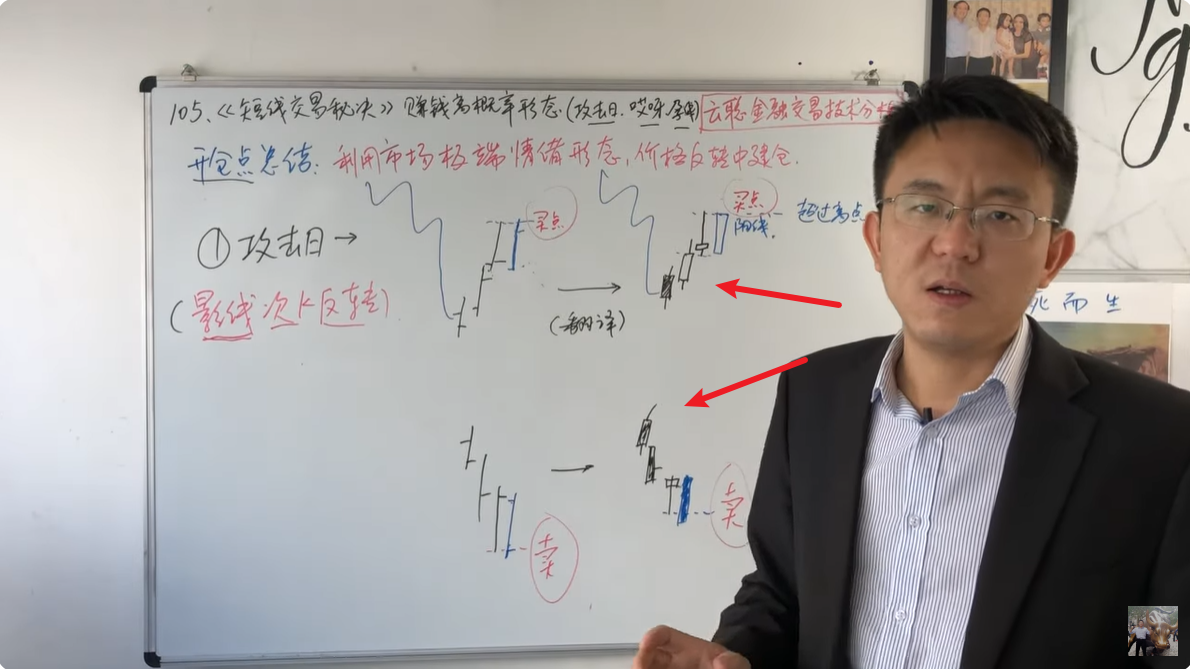 105、《短线交易秘决》赚钱高概率形态.(攻击日、哎呀、孕线) 云聪金融交易技术分析
开仓点总结: 利用市场极端情绪形态,价格反转中建仓.
①攻击日→
(影线次K反转)
买点
(翻译)
买点
阳线.
超过高点
死而生
卖
卖